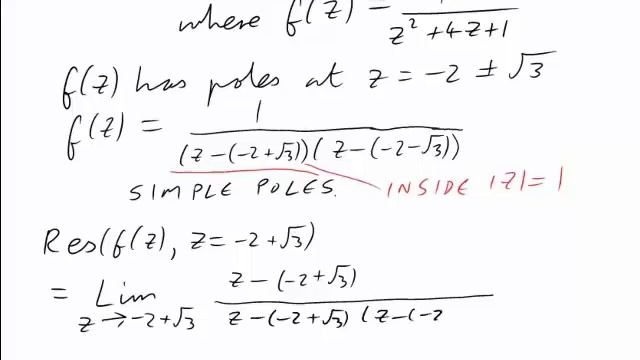 where f(z) =
z² + 4z + 1
f(z) has poles at z = -2 ± √3
f(z) = 1
(z - (-2 + √3)) ( z - (-2 - √3))
SIMPLE POLES.
INSIDE |z| = 1
Res(f(z), z = -2 + √3)
= Lim z → -2 + √3
z - (-2 + √3)
z - (-2 + √3) (z - (-2